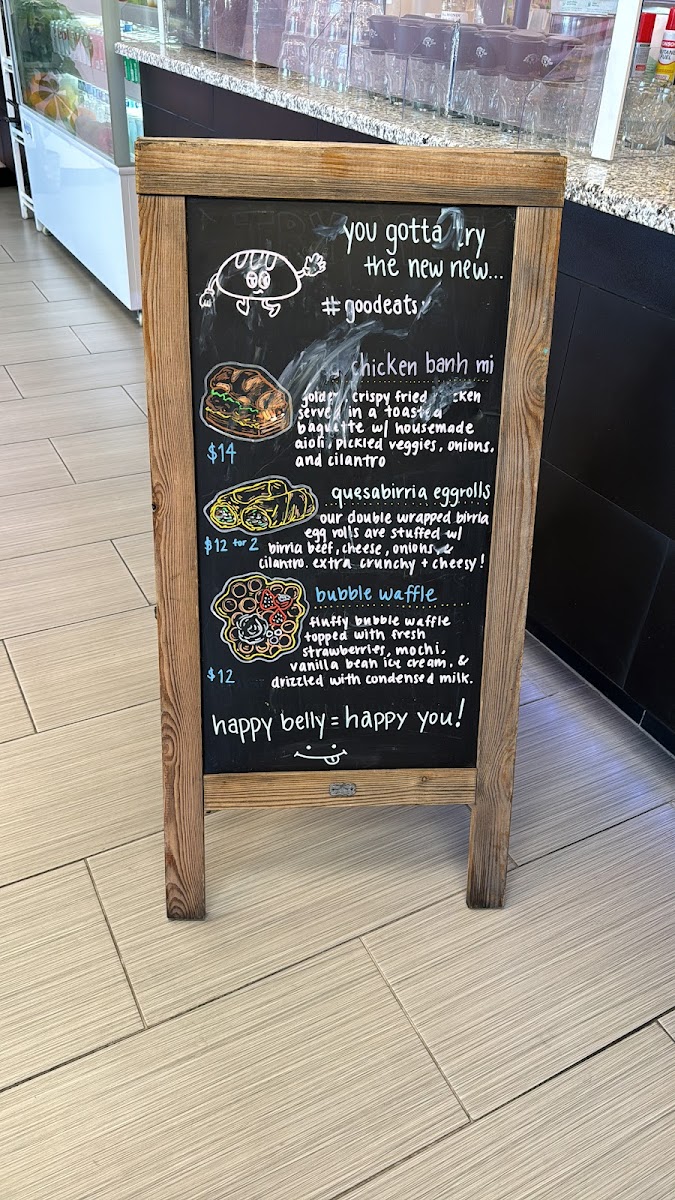 you gotta try
the new new...
#goodeats
chicken banh mi
golden, crispy fried chicken
served in a toasted
baguette w/ housemade
aioli, pickled veggies, onions,
and cilantro
$14
quesabirria eggrolls
our double wrapped birria
egg rolls are stuffed w/
birria beef, cheese, onions, &
cilantro. extra crunchy + cheesy!
$12 for 2
bubble waffle
fluffy bubble waffle
topped with fresh
strawberries, mochi,
vanilla bean ice cream, &
drizzled with condensed milk.
$12
happy belly = happy you!